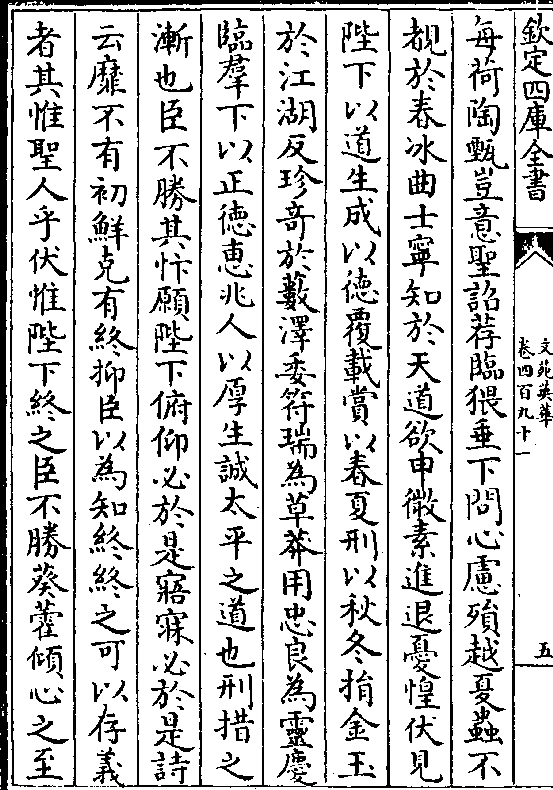 欽定四庫全書
文苑英華
卷四百九十一
五
每荷陶甄豈意聖詔荐臨猥垂下問心慮殞越夏蟲不
覩於春冰曲士寧知於天道欲申微素進退憂惶伏見
陛下以道生成以徳覆載賞以春夏刑以秋冬捐金玉
於江湖反珍竒於藪澤委符瑞為草莽用忠良為靈慶
臨羣下以正徳惠兆人以厚生誠太平之道也刑措之
漸也臣不勝其忭願陛下俯仰必於是寤寐必於是詩
云靡不有初鮮克有終抑臣以為知終終之可以存義
者其惟聖人乎伏惟陛下終之臣不勝葵藿傾心之至